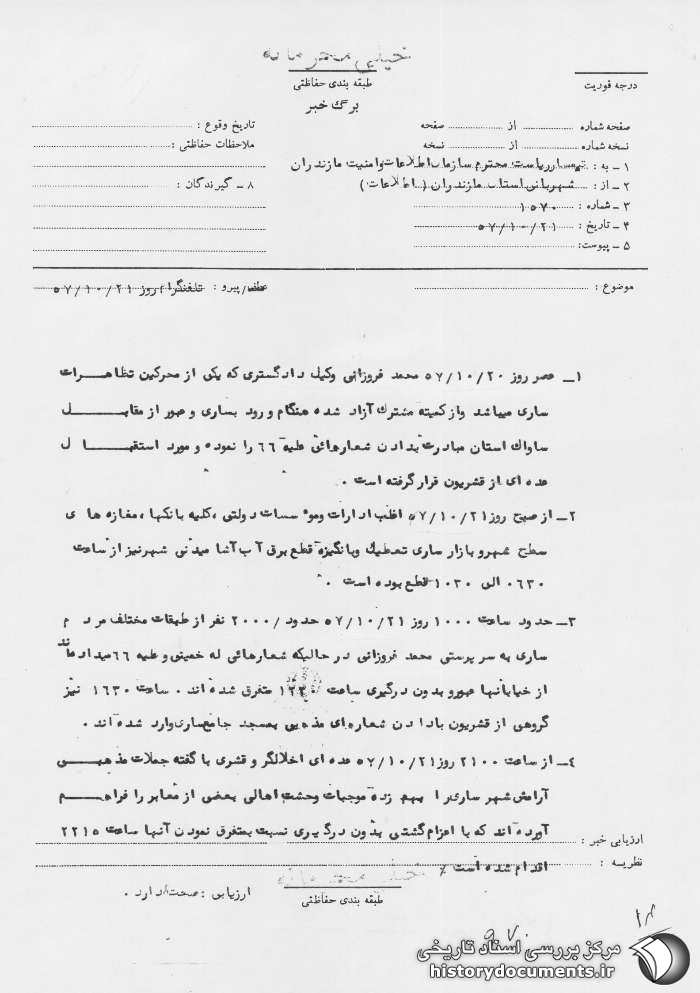 خیلی محرمانه
طبقه بندی حفاظتی
درجه فوریت
برگ خبر
صفحه شماره از صفحه
نسخه شماره از نسخه
۱ ـ به : تیمسار ریاست محترم سازمان اطلاعات وامنیت مازندران
۲ ـ از : شهربانی استان مازندران (اطلاعات)
۳ ـ شماره : ۱۵۷۰
۴ ـ تاریخ : ۵۷/۱۰/۲۱
۵ ـ پیوست:
تاریخ وقوع :
ملاحظات حفاظتی :
۸ ـ گیرندگان :
موضوع :
عطف/پیرو : تلفنگرام روز ۵۷/۱۰/۲۱
۱ـ عصر روز ۵۷/۱۰/۲۰ محمد فروزانی وکیل دادگستری که یکی از محرکین تظاهرات
ساری میباشد واز کمیته مشترک آزاد شده هنگام ورود بساری و عبور از مقابل
ساواک استان مبادرت بدادن شعارهائی علیه ۶۶ را نموده و مورد استقبال
عده ای از قشریون قرار گرفته است .
۲ـ از صبح روز ۵۷/۱۰/۲۱ اغلب ادارات وموسسات دولتی ،کلیه بانکها ،مغازه های
سطح شهرو بازار ساری تعطیل وبانگیزه قطع برق آب آشامیدنی شهرنیز از ساعت
۰۶۳۰ الی ۱۰۳۰ قطع بوده است .
۳ـ حدود ساعت ۱۰۰۰ روز ۵۷/۱۰/۲۱ حدود /۲۰۰۰ نفر از طبقات مختلف مردم
ساری به سرپرستی محمد فروزانی در حالیکه شعارهائی له خمینی و علیه ۶۶ میدادهاند
از خیابانها عبورو بدون درگیری ساعت ۱۲۳۰ متفرق شده اند . ساعت ۱۶۳۰ نیز
گروهی از قشریون بادادن شعارهای مذهبی بمسجد جامع ساری وارد شده اند .
۴ـ از ساعت ۲۱۰۰ روز ۵۷/۱۰/۲۱ عده ای اخلالگر و قشری با گفته جملات مذهبی
آرامش شهر ساری را بهم زده موجبات وحشت اهالی بعضی از معابر را فراهم
آورده اند که با اعزام گشتی بدون درگیری نسبت بمتفرق نمودن آنها ساعت ۲۲۱۵
اقدام شده است ٪
ارزیابی خبر :
نظریه :
خیلی محرمانه
طبقه بندی حفاظتی
ارزیابی : صحت دارد .
مرکز بررسی اسناد تاریخی
historydocuments.ir